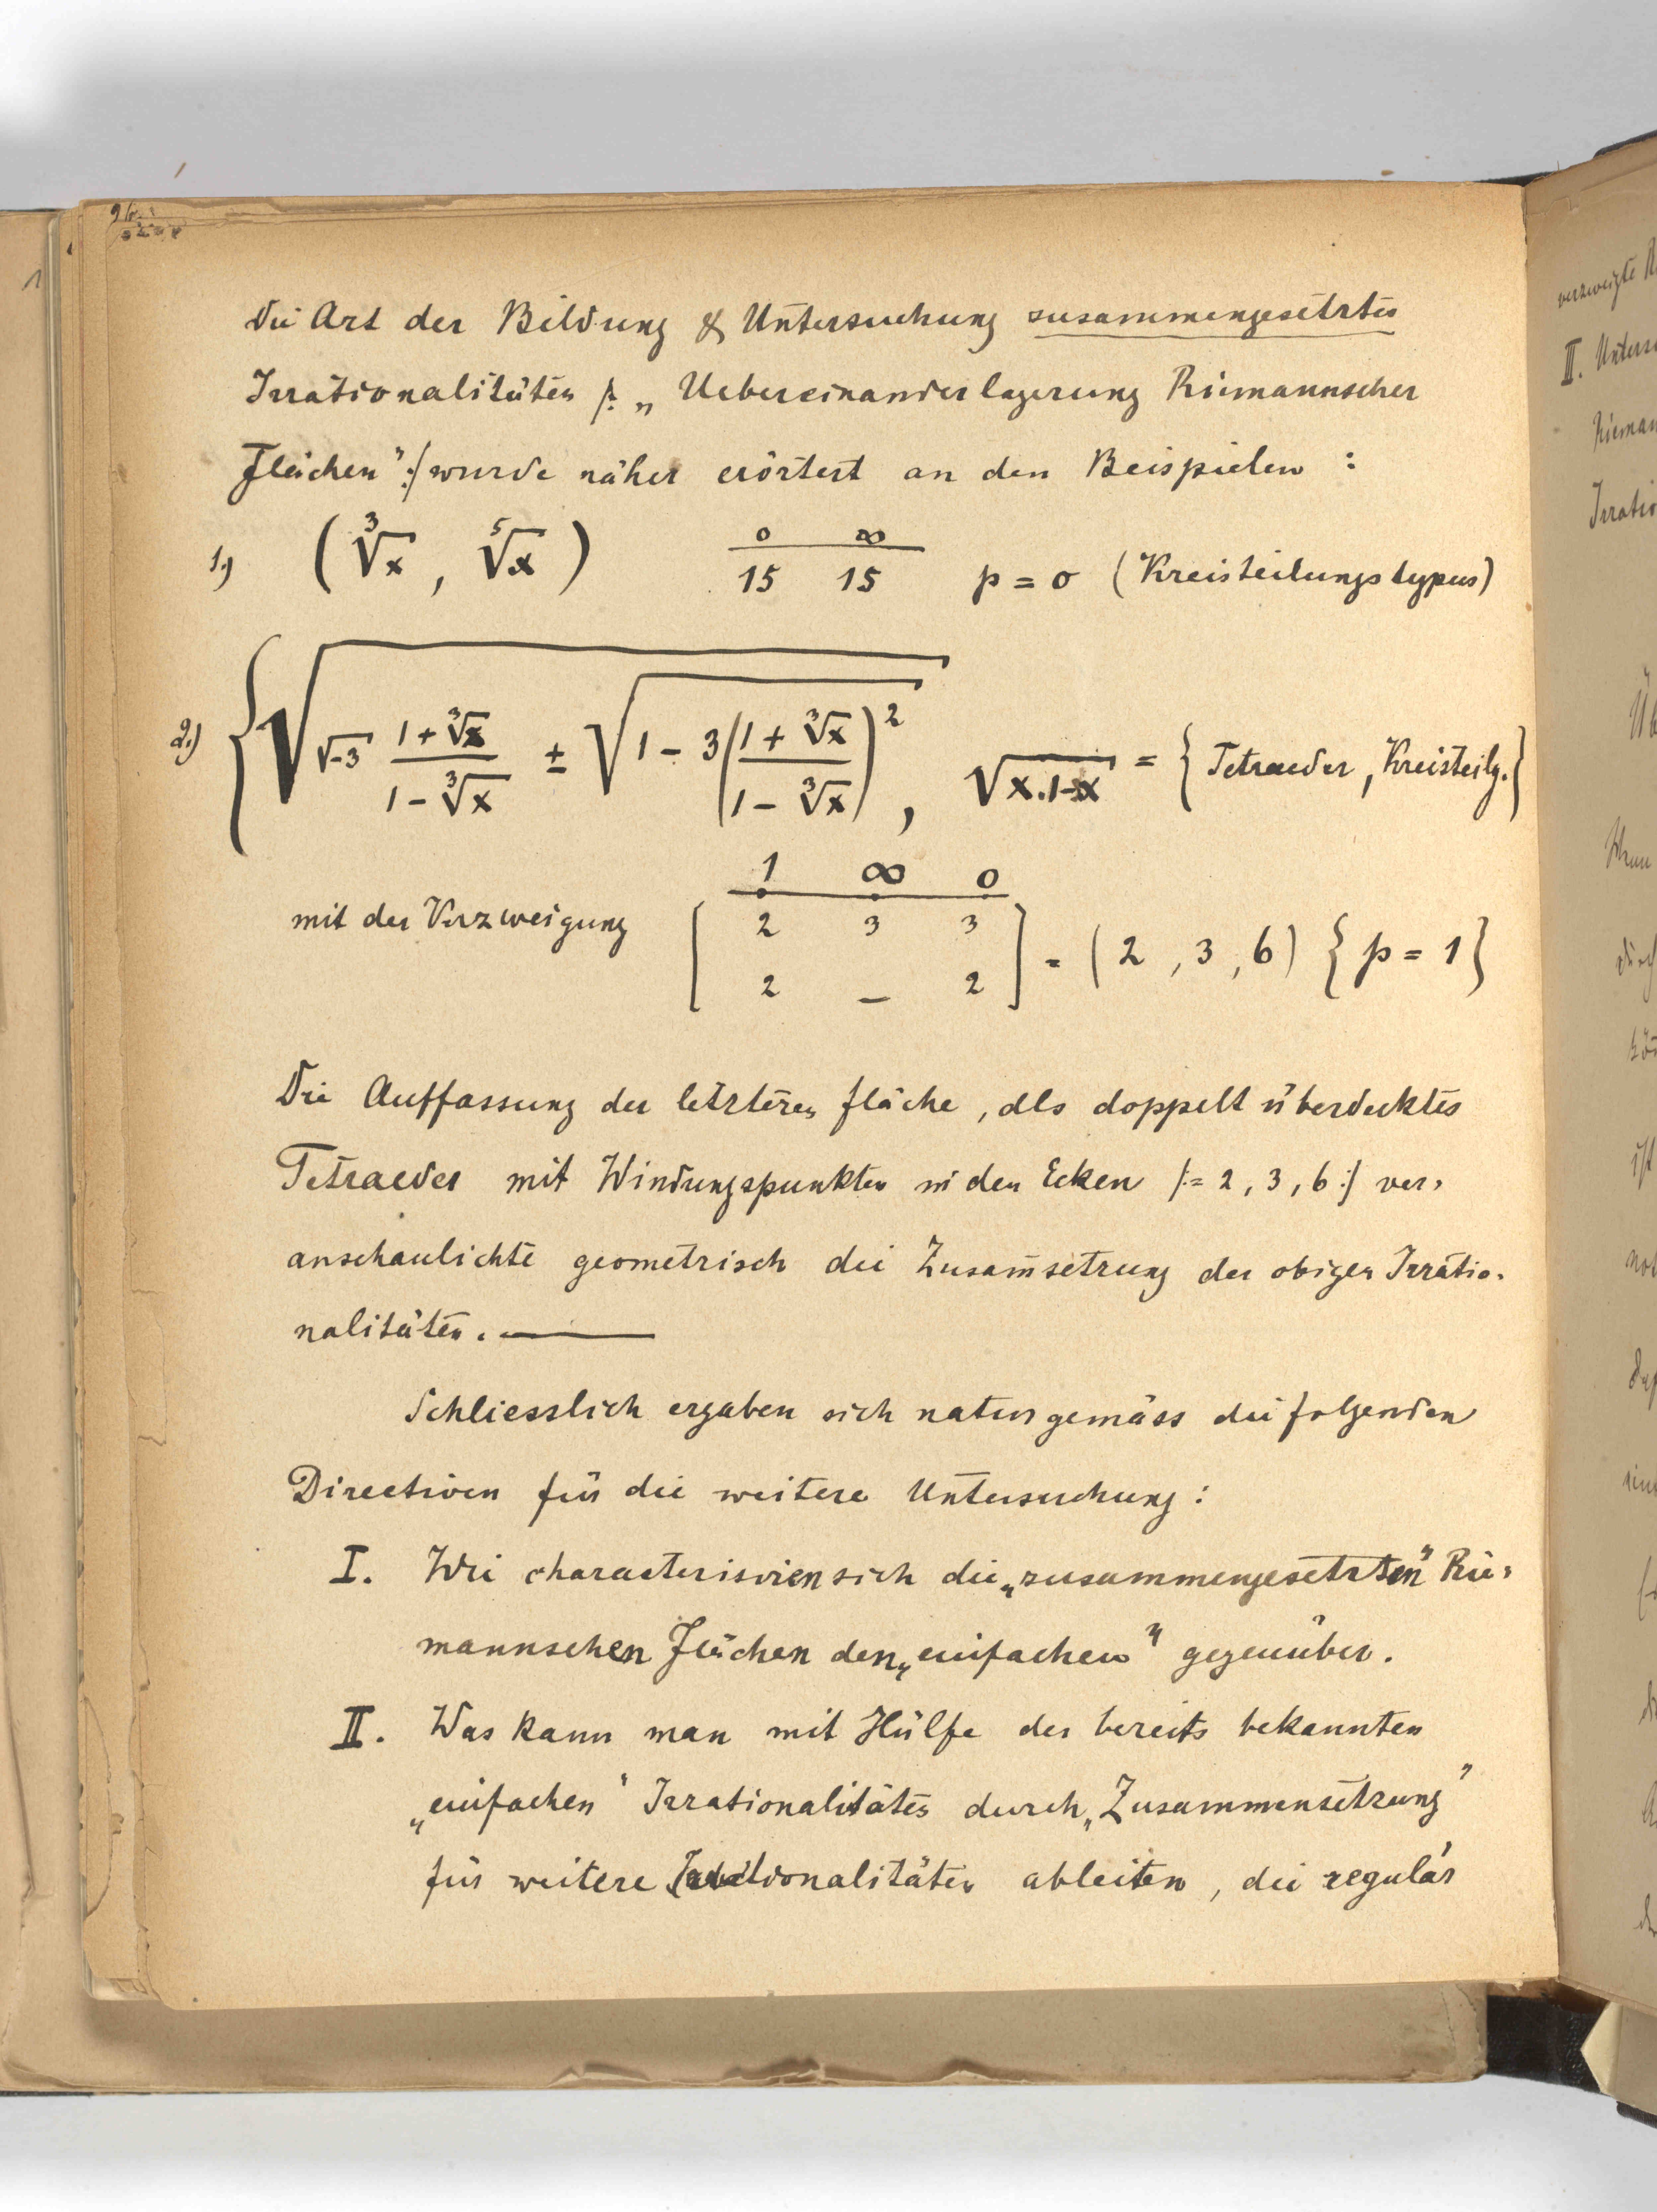 Die Art der Bildung & Untersuchung zusammengesetzter
Irrationalitäten /: „Uebereinanderlagerung Riemannscher
Flächen" :/ wurde näher erörtert an den Beispielen :
1.) (∛x, ⁵√x) 0 ∞ / 15 15 p = 0 (Kreisteilungstypus)
2.) { √(√-3 (1+∛x)/(1-∛x) ± √(1-3((1+∛x)/(1-∛x))²)), √(x.1-x) = {Tetraeder, Kreisteilg.}
1 ∞ 0
mit der Verzweigung [ 2 3 3
2 – 2 ] = (2, 3, 6) {p = 1}
Die Auffassung der letzteren Fläche, als doppelt überdecktes
Tetraeder mit Windungspunkten in den Ecken /:= 2, 3, 6 :/ ver-
anschaulichte geometrisch die Zusam̄setzung der obigen Irratio-
nalitäten. —
Schliesslich ergaben sich naturgemäss die folgenden
Directiven für die weitere Untersuchung :
I. Wie characterisiren sich die „zusammengesetzten" Rie-
mannschen Flächen den „einfachen" gegenüber.
II. Was kann man mit Hülfe der bereits bekannten
„einfachen" Irrationalitäten durch „Zusammensetzung"
für weitere Irrationalitäten ableiten, die regulär
verzweigte
II.